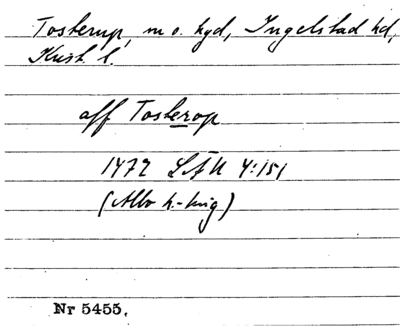 Tosterup, m o. kyd, Ingelstad hd,
Krist l.
aff Tosterop
1472 LÄU 4:151
(Albo h.-ting)
Nr 5455.